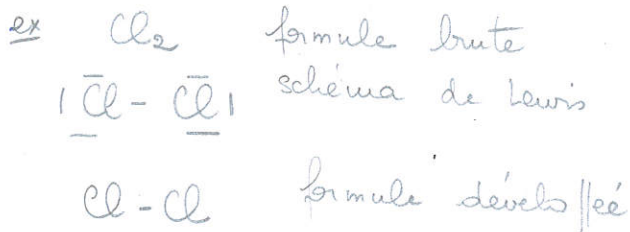 ex Cl₂ formule brute
|C̅l̲ - C̅l̲| schéma de Lewis
Cl - Cl formule développeé